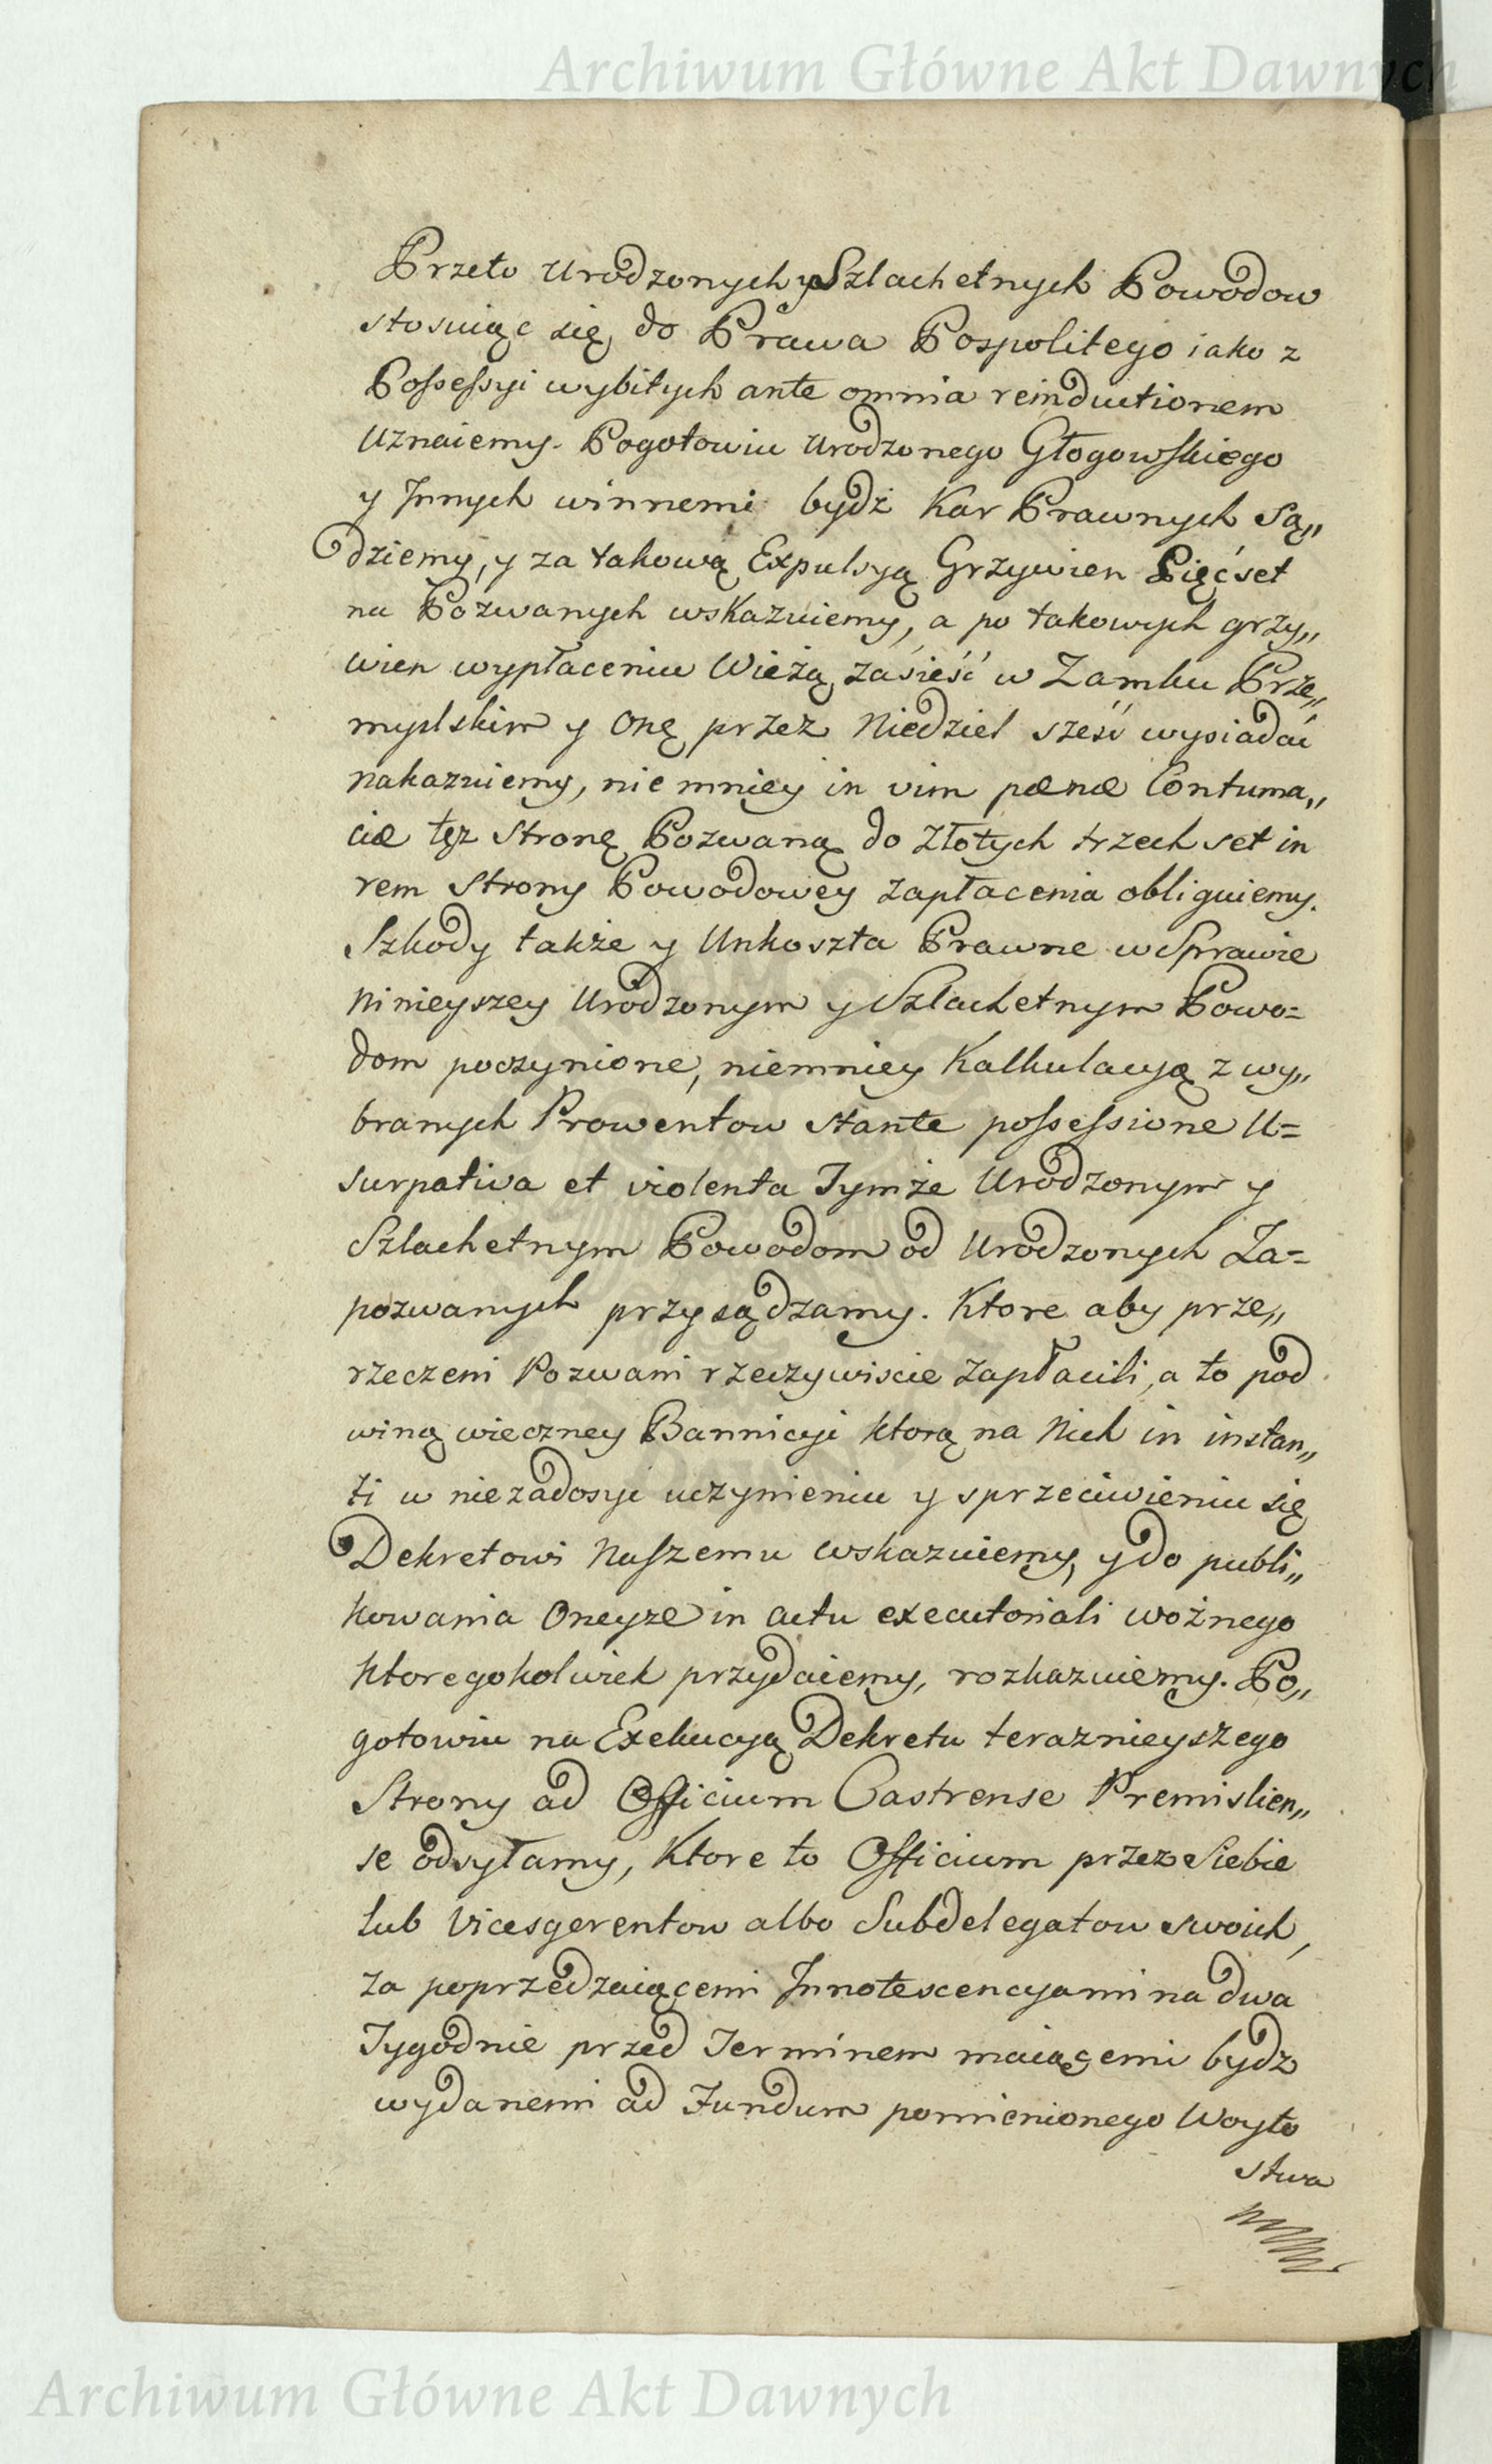 Archiwum Główne Akt Dawnych
Przeto Urodzonych y Szlachetnych Powodow
stosuiąc się do Prawa Pospolitego iako z
Possessyi wybitych ante omnia reinductionem
Uznaiemy. Pogotowiu Urodzonego Głogowskiego
y Innych winnemi bydź Kar Prawnych Są„
dziemy, y za takową Expulsyą Grzywien Pięćset
na Pozwanych wskazuiemy, a po takowych grzy„
wien wypłaceniu Wieżą zasieść w Zamku Prze„
myslskim y Onę przez Niedziel sześć wysiadać
nakazuiemy, nie mniey in vim pænæ Contuma„
ciæ tęż Stronę Pozwaną do Złotych trzech set in
rem Strony Powodowey zapłacenia obliguiemy.
Szkody także y Unkoszta Prawne w Sprawie
Ninieyszey Urodzonym y Szlachetnym Powo=
dom poczynione, niemniey Kalkulacyą z wy„
branych Prowentow stante possessione U=
surpativa et violenta Tymże Urodzonym y
Szlachetnym Powodom od Urodzonych Za=
pozwanych przysądzamy. Ktore aby prze„
rzeczeni Pozwani rzeczywiscie zapłacili, a to pod
winą wieczney Bannicyi ktorą na Nich in instan„
ti w niezadosyc uczynieniu y sprzeciwieniu się
Dekretowi Naszemu wskazuiemy, y do publi„
kowania Oneyze in actu executoriali woźnego
ktoregokolwiek przydaiemy, rozkazuiemy. Po„
gotowiu na Exekucyą Dekretu teraznieyszego
Strony ad Officium Castrense Premislien„
se odsyłamy, Ktore to Officium przez Siebie
lub Vicesgerentow albo Subdelegatow swoich,
za poprzedzaiącemi Innotescencyami na dwa
Tygodnie przed Terminem maiącemi bydz
wydanemi ad Fundum pomienionego Woyto
stwa
Archiwum Główne Akt Dawnych